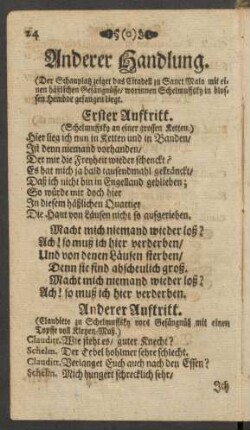 24
Anderer Handlung.
(Der Schauplatz zeiget das Citadell zu Sanct Malo mit ei-
nen häßlichen Gefängnüße/ worinnen Schelmuffsky in blos-
sen Hembde gefangen liegt.
Erster Auftritt.
(Schelmuffsky an einer grossen Ketten.)
Hier lieg ich nun in Ketten und in Banden/
Ist denn niemand vorhanden/
Der mir die Freyheit wieder schenckt?
Es hat mich ja bald tausendmahl gekränckt/
Daß ich nicht bin in Engelland geblieben;
So würde mir doch hier
In diesem häßlichen Quartier
Die Haut von Läusen nicht so aufgerieben.
Macht mich niemand wieder loß?
Ach! so muß ich hier verderben/
Und von denen Läusen sterben/
Denn sie sind abscheulich groß.
Macht mich niemand wieder loß?
Ach! so muß ich hier verderben.
Anderer Auftritt.
(Clauditte zu Schelmuffsky vors Gefängnüß mit einen
Topffe voll Kleyen-Muß.)
Clauditt. Wie steht es/ guter Knecht?
Schelm. Der Tebel hohlmer sehre schlecht.
Clauditt. Verlanget Euch auch nach den Essen?
Schelm. Mich hungert schrecklich sehr/
Ich